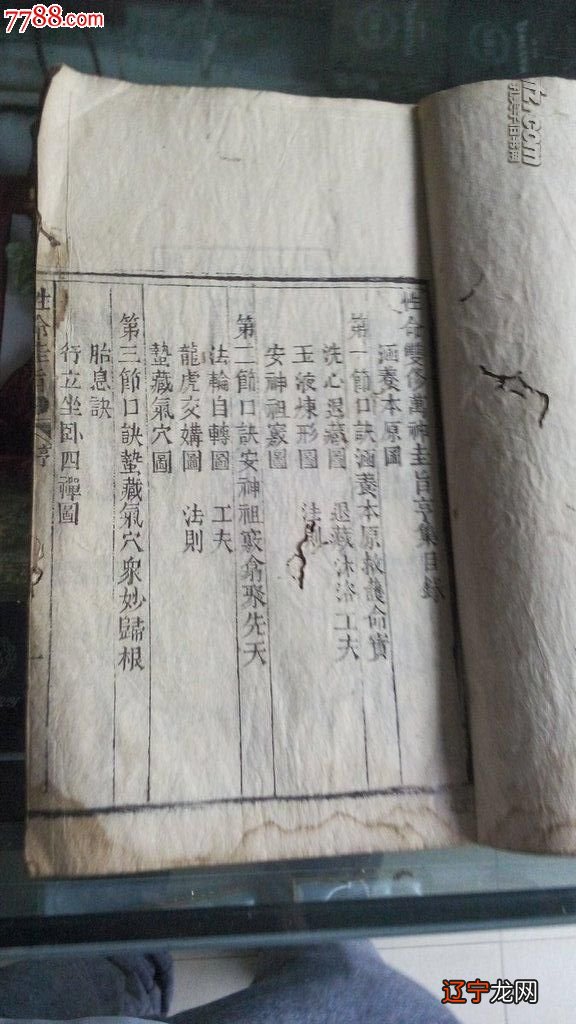 7788.com
性命雙修萬神圭旨亨集目錄
涵養本原圖
第一節口訣涵養本原救護命寶
洗心退藏圖 退藏沐浴工夫
玉液煉形圖 法則
安神祖竅圖
第二節口訣安神祖竅翕聚先天
法輪自轉圖 工夫
龍虎交媾圖 法則
蟄藏氣穴圖
第三節口訣蟄藏氣穴衆妙歸根
胎息訣
行立坐卧四禪圖
性命圭旨
一
辽宁龙网